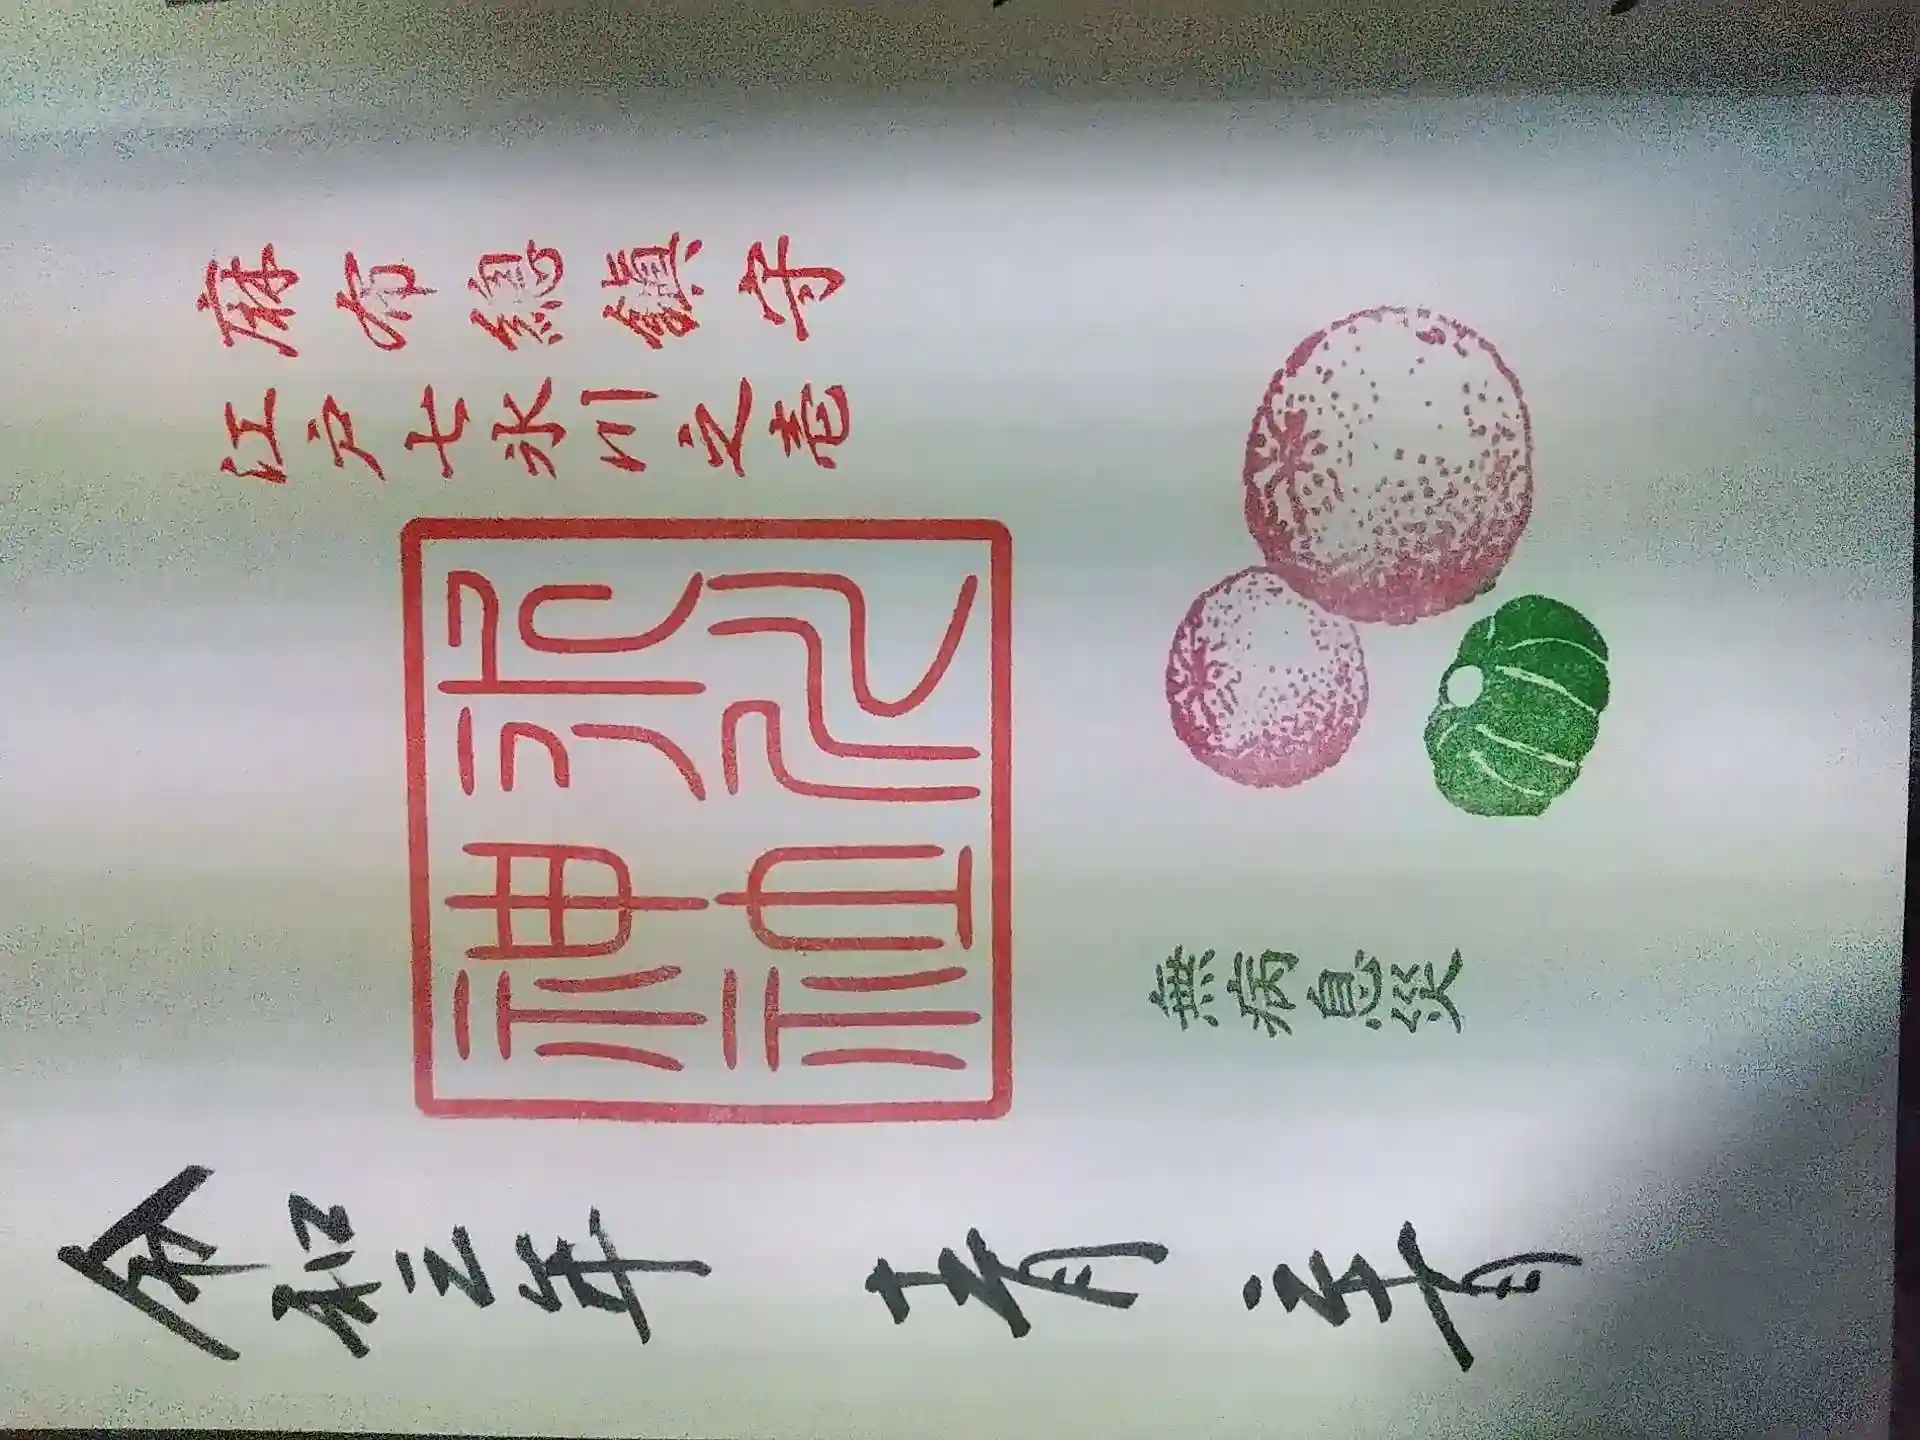 麻布總鎮守
江戸七氷川之壱
氷川
神社
無病息災
令和三年